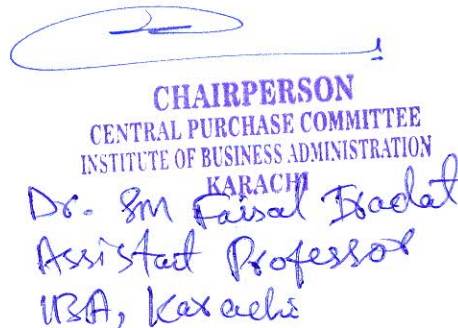 CHAIRPERSON
CENTRAL PURCHASE COMMITTEE
INSTITUTE OF BUSINESS ADMINISTRATION
KARACHI
Dr. SM Faisal Iradat
Assistat Professor
IBA, Karachi